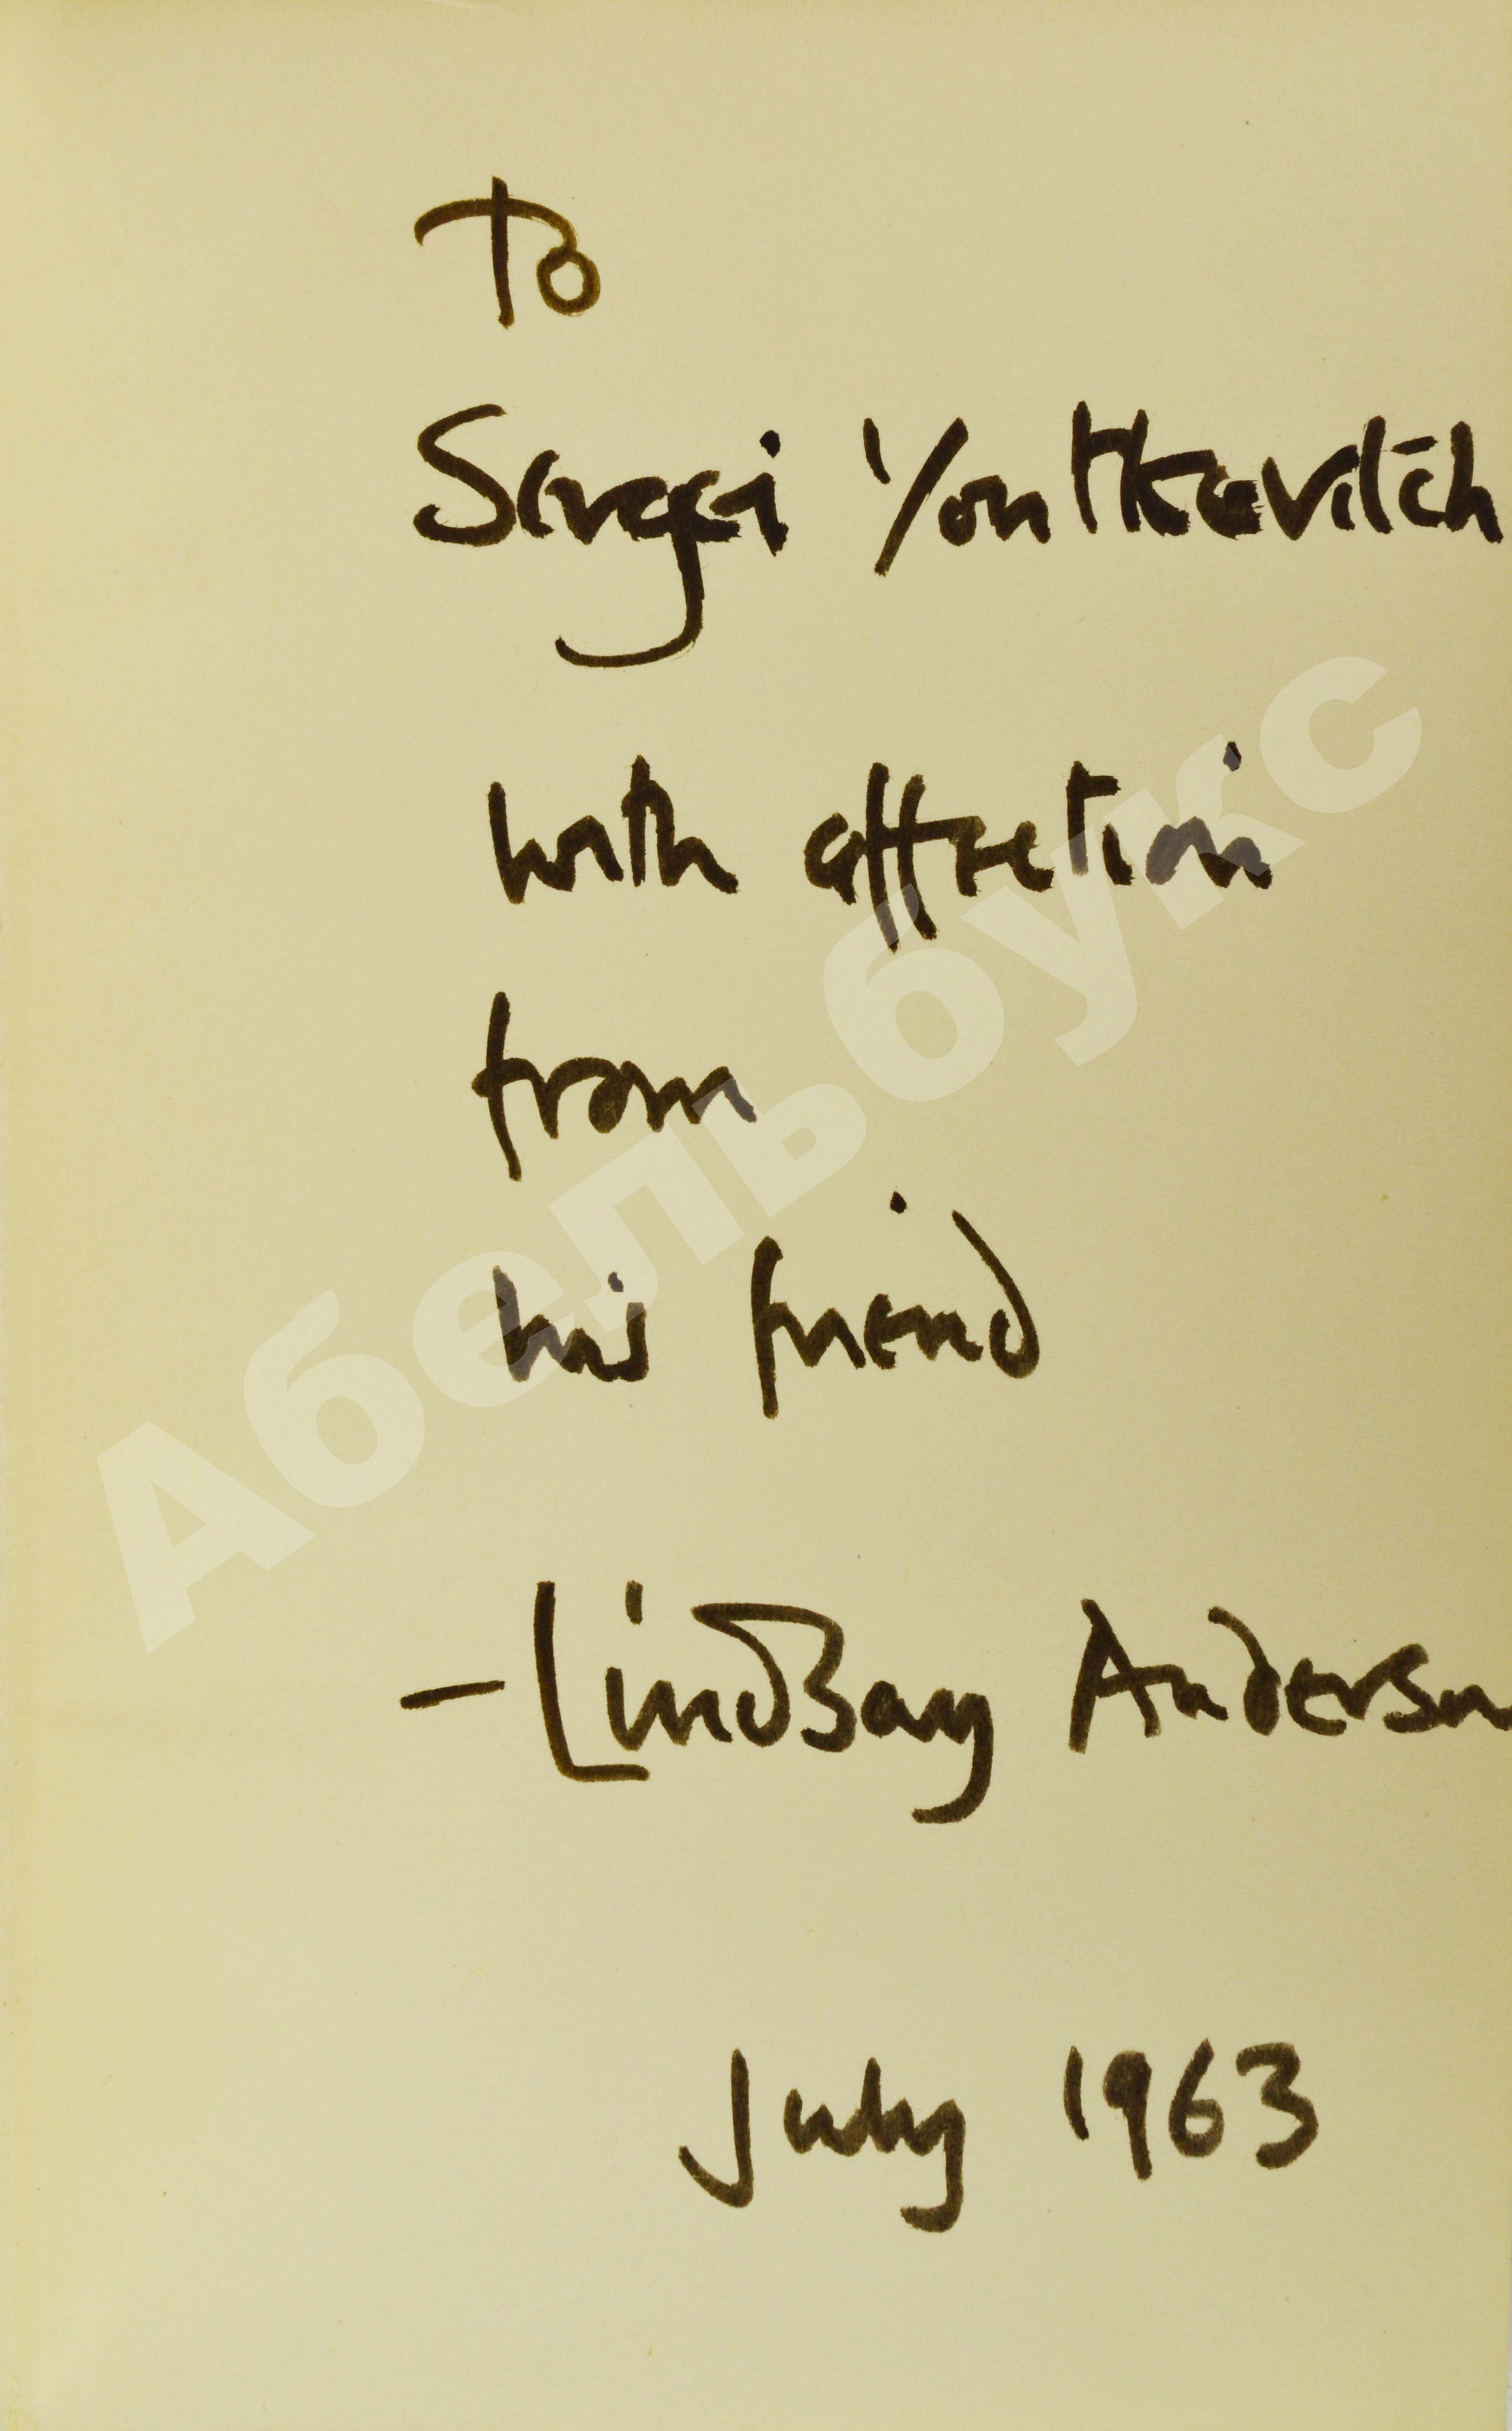 To
Sergei Youtkevitch
with affection
from
his friend
—Lindsay Anderson
July 1963
Абельбукс